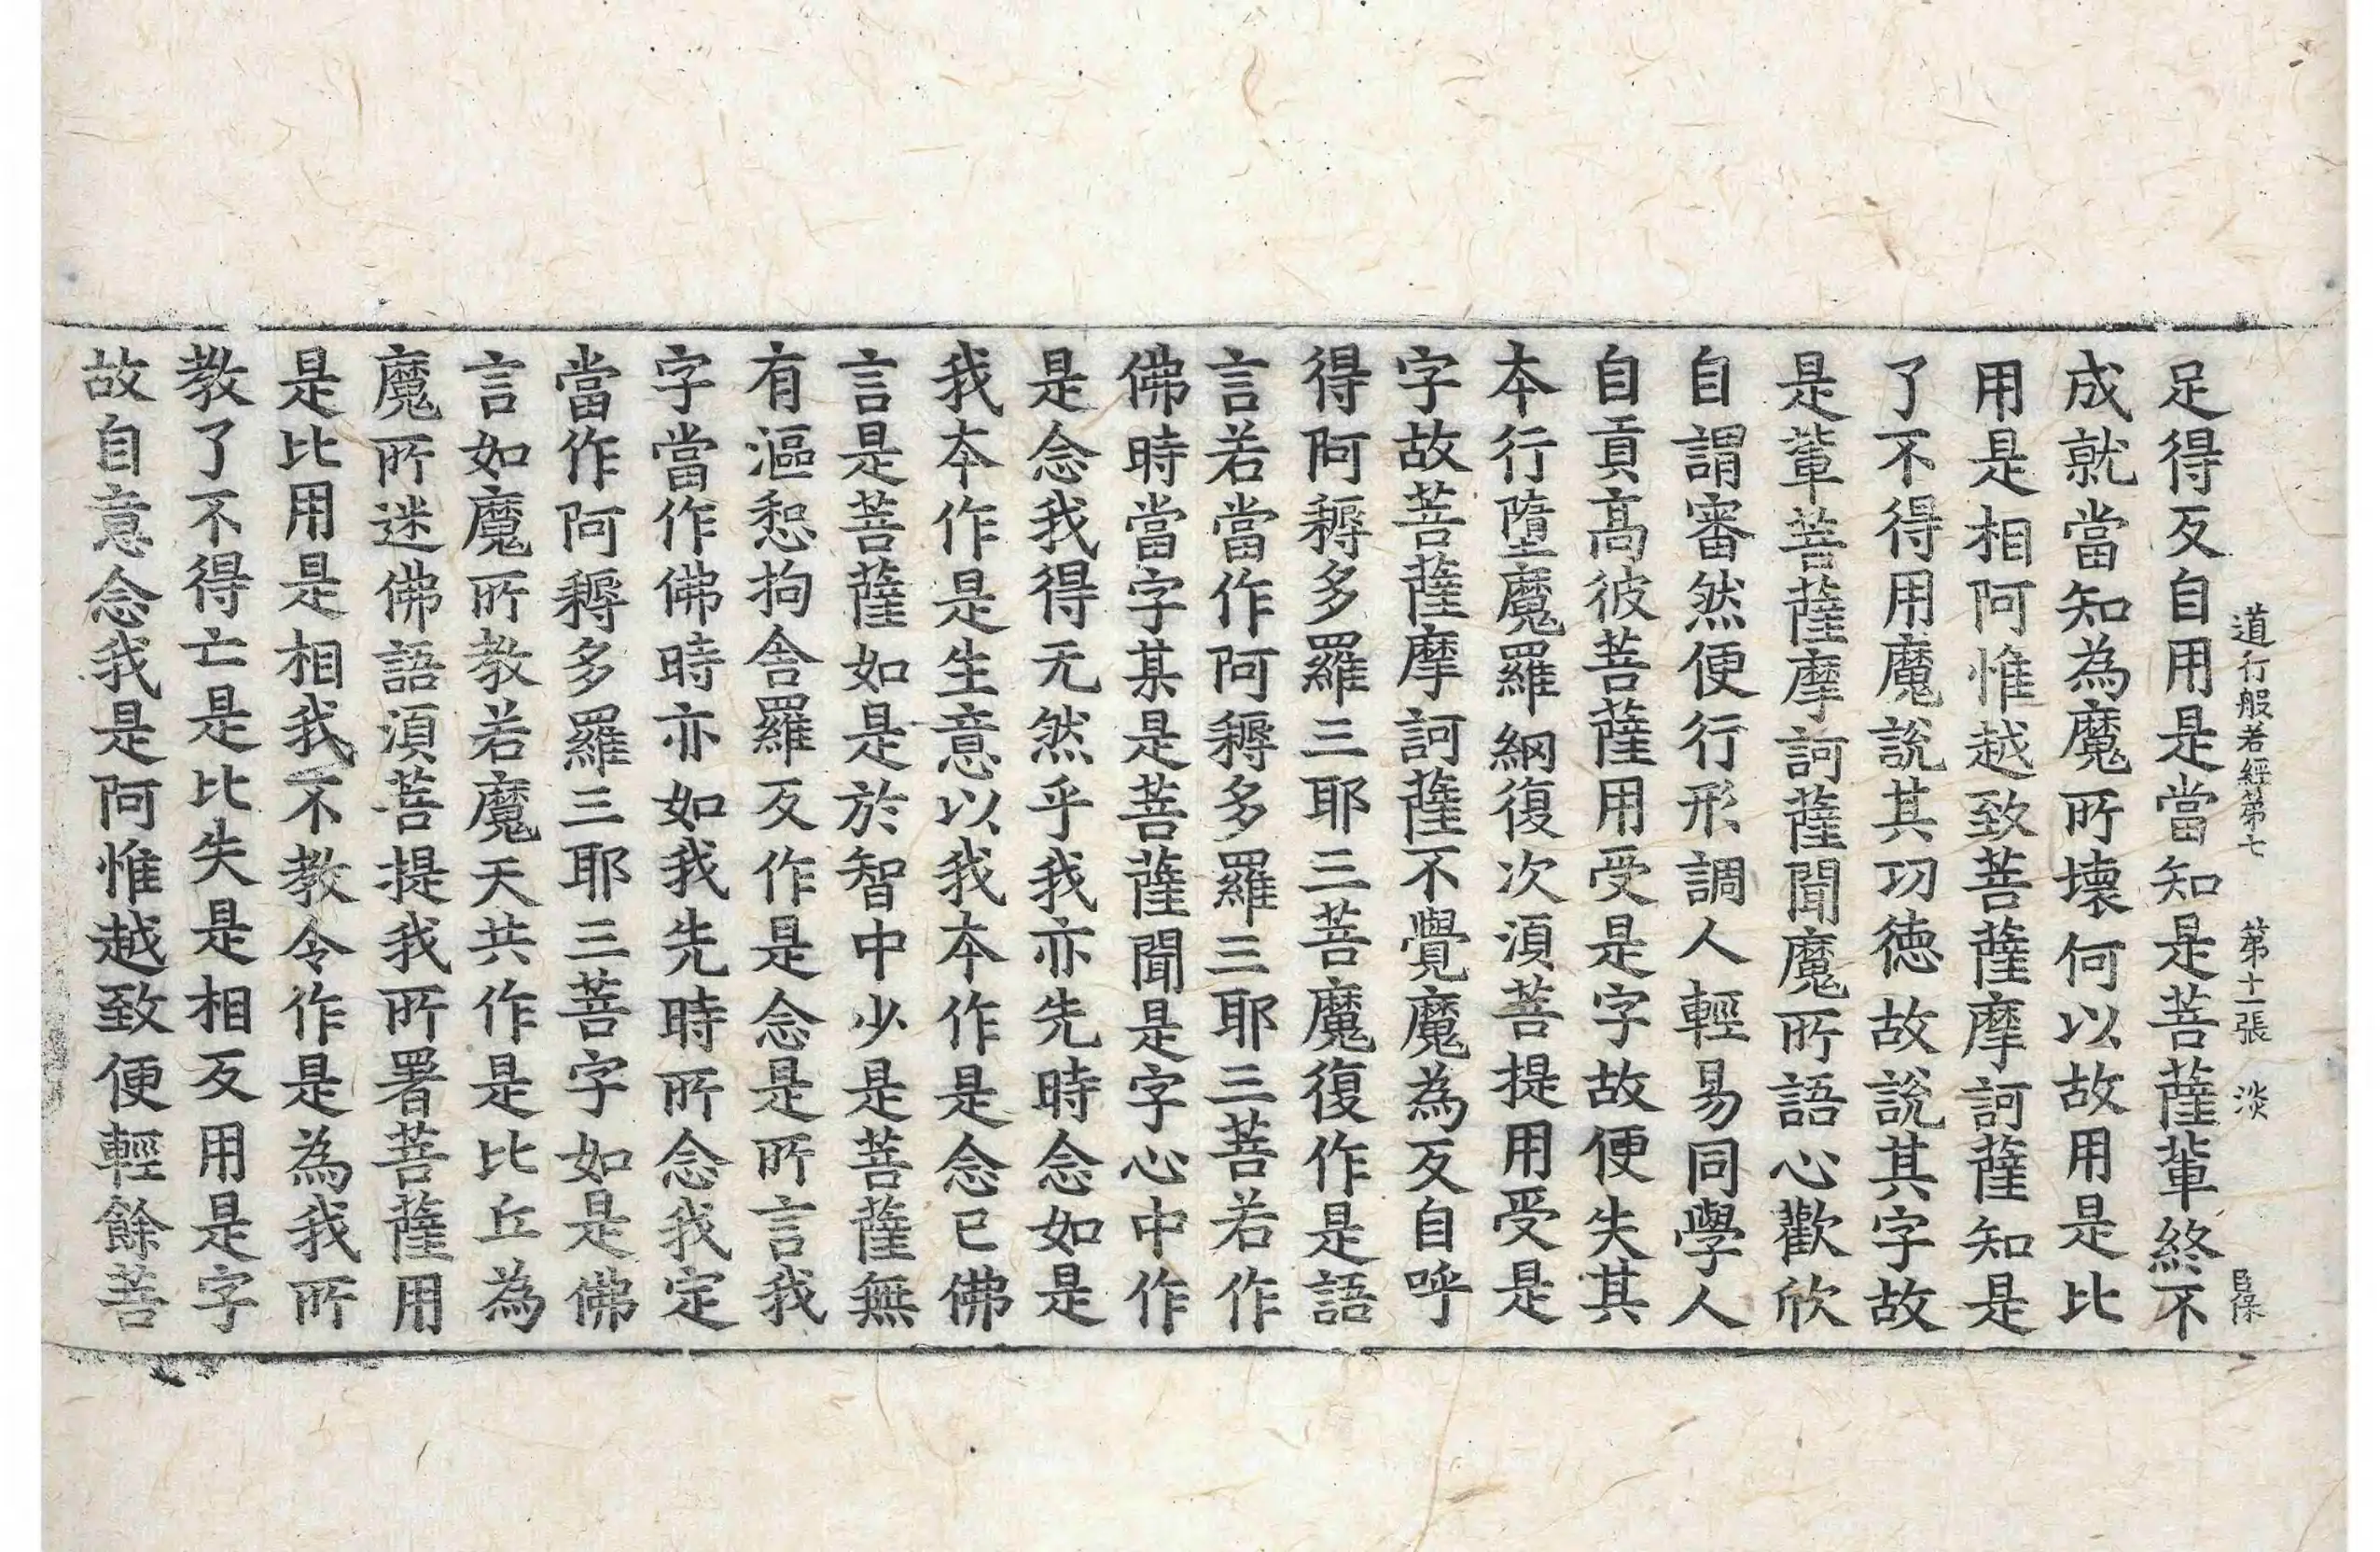 道行般若經第七　第十一張　淡
足得反自用是當知是菩薩輩終不
成就當知為魔所壞何以故用是比
用是相阿惟越致菩薩摩訶薩知是
了不得用魔說其功德故說其字故
是輩菩薩摩訶薩聞魔所語心歡欣
自謂審然便行形調人輕易同學人
自貢高彼菩薩用受是字故便失其
本行墮魔羅網復次須菩提用受是
字故菩薩摩訶薩不覺魔為反自呼
得阿耨多羅三耶三菩魔復作是語
言若當作阿耨多羅三耶三菩若作
佛時當字某是菩薩聞是字心中作
是念我得无然乎我亦先時念如是
我本作是生意以我本作是念已佛
言是菩薩如是於智中少是菩薩無
有漚惒拘舍羅反作是念是所言我
字當作佛時亦如我先時所念我定
當作阿耨多羅三耶三菩字如是佛
言如魔所教若魔天共作是比丘為
魔所迷佛語須菩提我所署菩薩用
是比用是相我不教令作是為我所
教了不得亡是比失是相反用是字
故自意念我是阿惟越致便輕餘菩